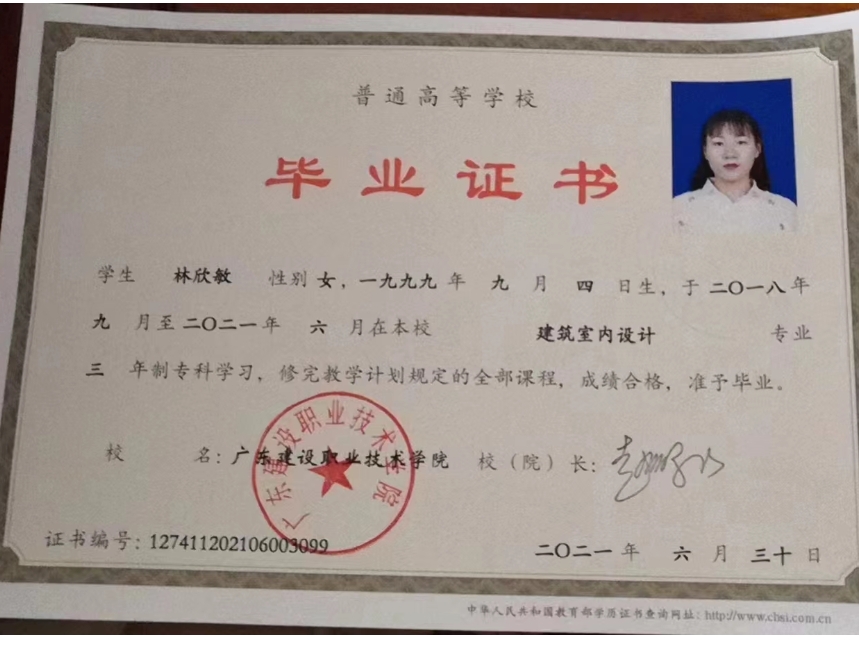 普通高等学校
毕业证书
学生 林欣敏 性别 女，一九九九 年 九 月 四 日生，于 二〇一八 年
九 月至 二〇二一 年 六 月在本校 建筑室内设计 专业
三 年制专科学习，修完教学计划规定的全部课程，成绩合格，准予毕业。
校 名：广东建设职业技术学院 校（院）长：
广东建设职业技术学院
证书编号：127411202106003099
二〇二一 年 六 月 三十 日
中华人民共和国教育部学历证书查询网址：http://www.chsi.com.cn